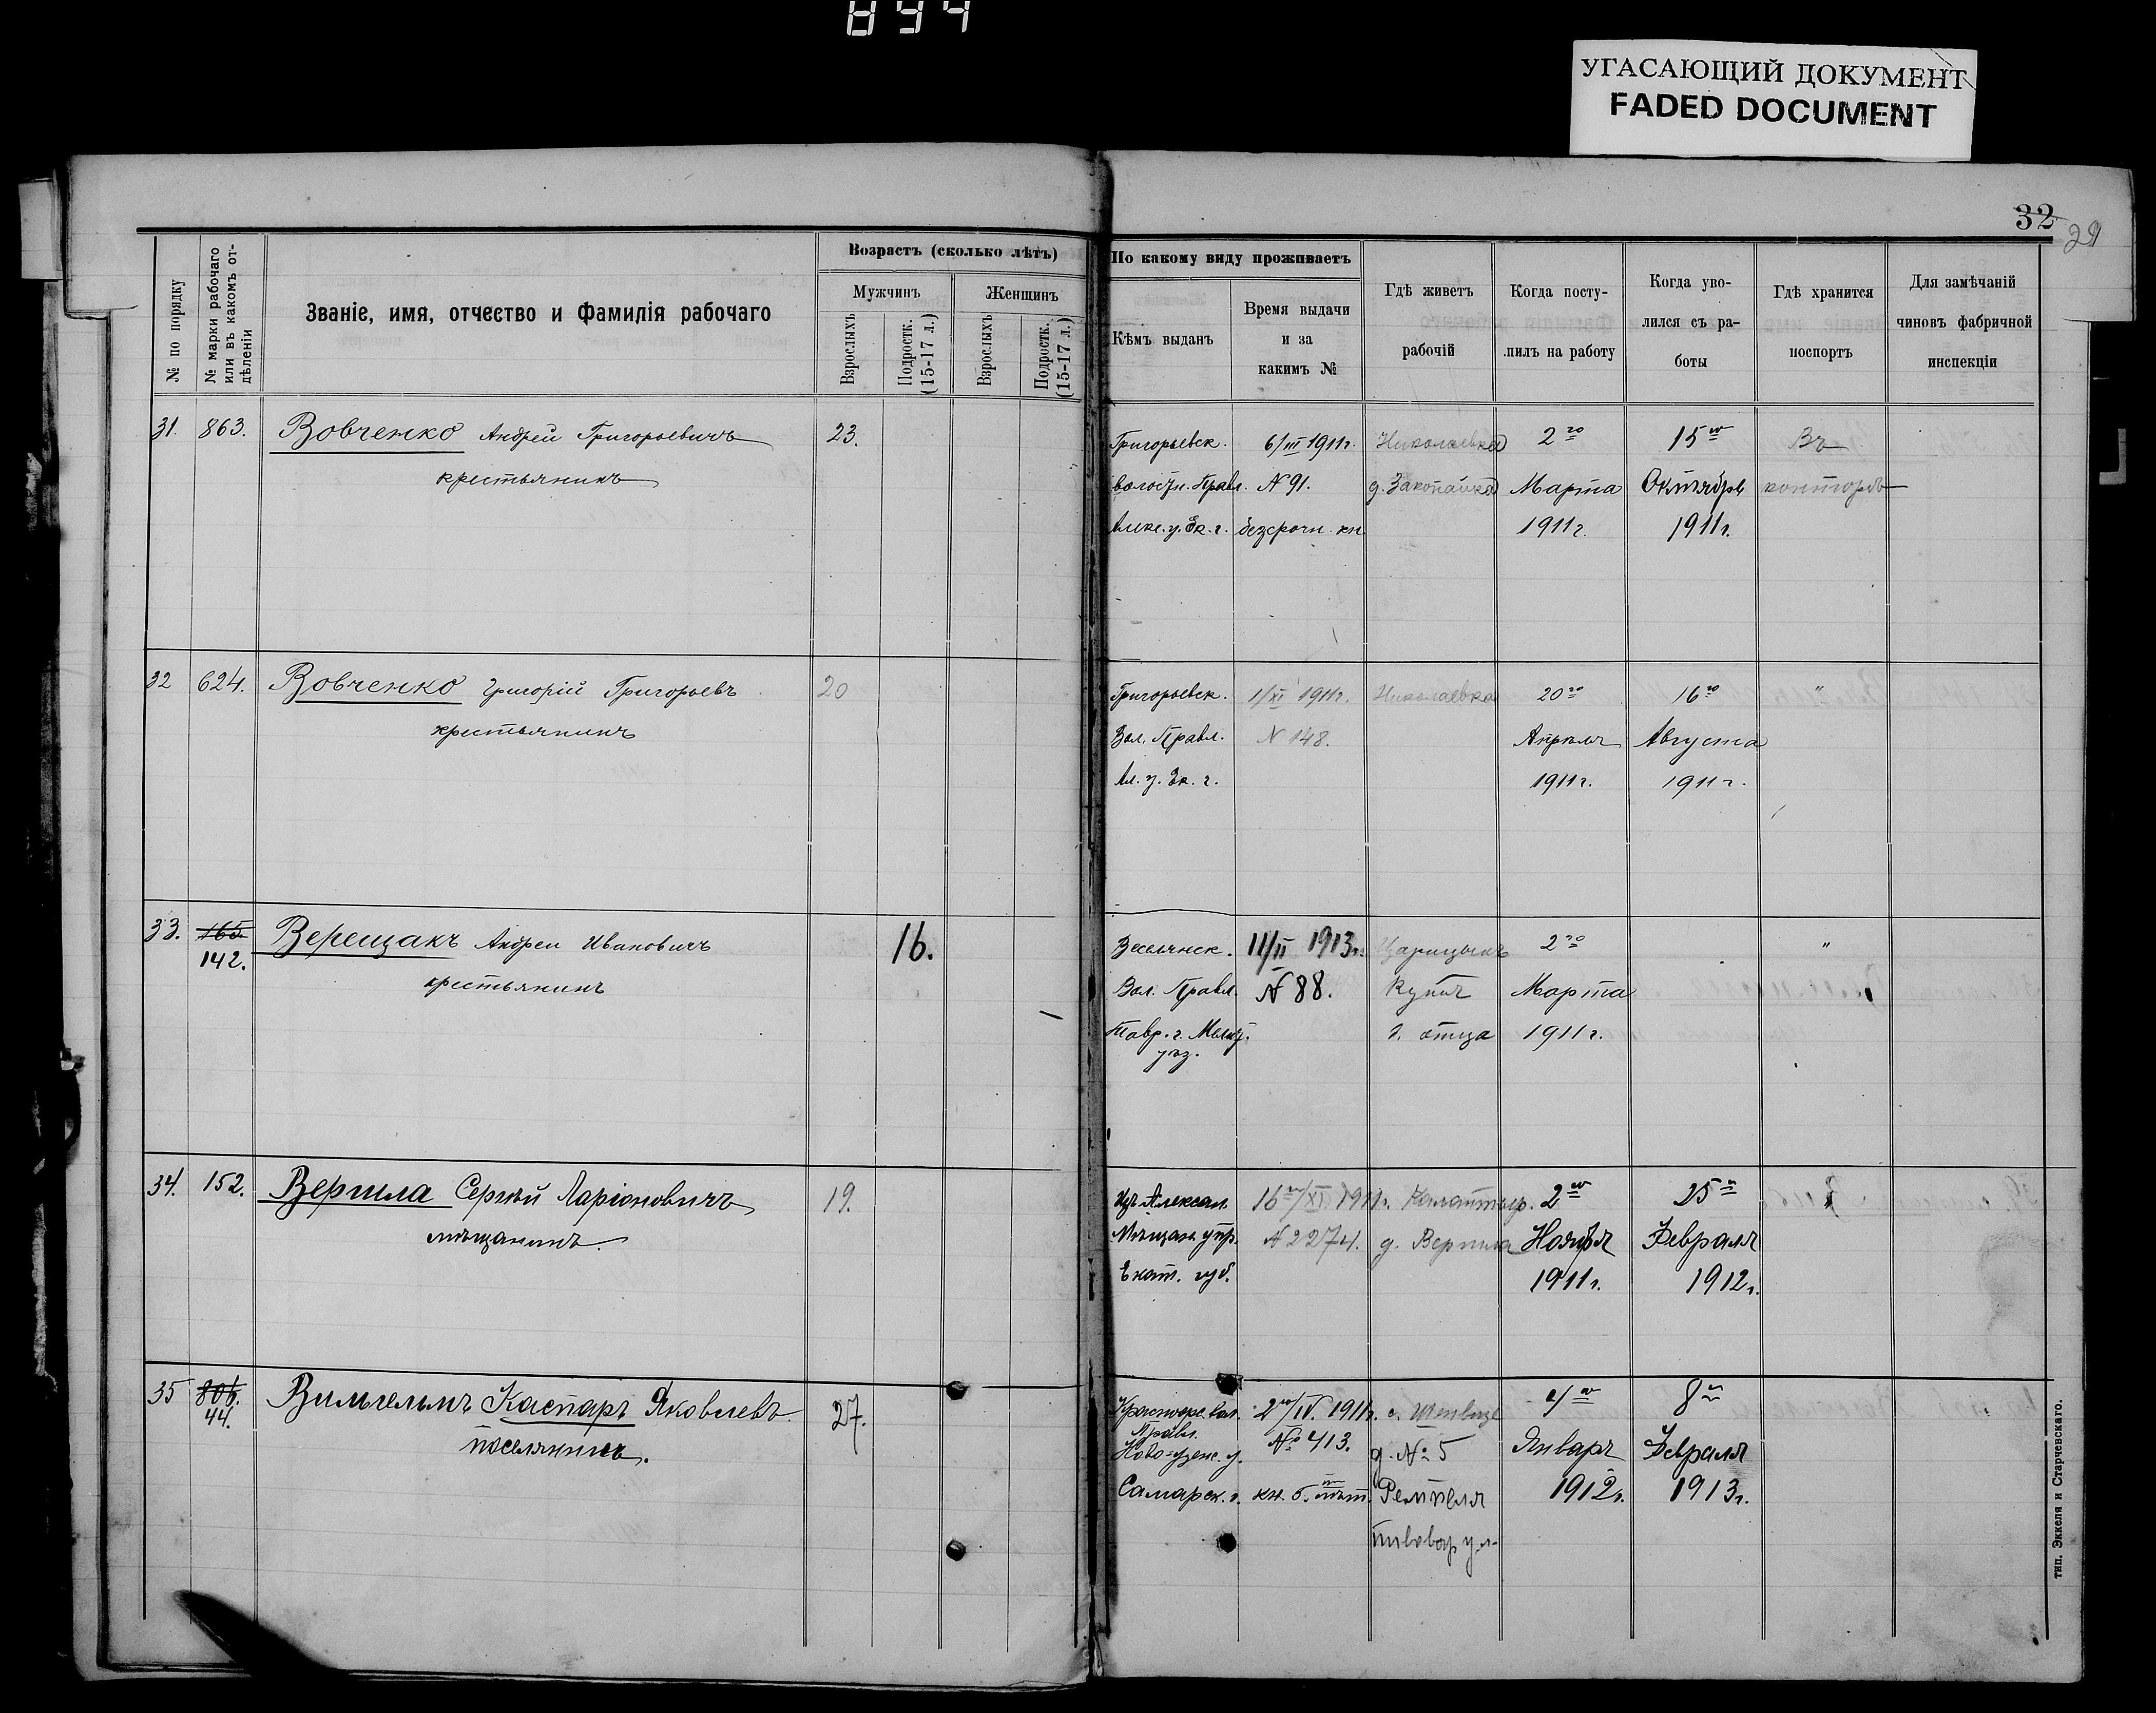 894
УГАСАЮЩИЙ ДОКУМЕНТ
FADED DOCUMENT
32
29
№ по порядку
№ марки рабочаго или въ какомъ отдѣленіи
Званіе, имя, отчество и фамилія рабочаго
Возрастъ (сколько лѣтъ)
Мужчинъ
Женщинъ
Взрослыхъ
Подростк. (15-17 л.)
Взрослыхъ
Подростк. (15-17 л.)
По какому виду проживаетъ
Кѣмъ выданъ
Время выдачи и за какимъ №
Гдѣ живетъ рабочій
Когда поступилъ на работу
Когда уволился съ работы
Гдѣ хранится поспортъ
Для замѣчаній чиновъ фабричной инспекціи
31. 863. Вовченко Андрей Григорьевичъ 23. Григорьевск. 6/III 1911г. Николаевка 2го 15го Въ
крестьянинъ волостн. Правл. № 91. д. Закопайка Марта Октября конторѣ
Алек. у. Ек. г. безсрочн. кн. 1911г. 1911г.
32 624. Вовченко Григорій Григорьевъ 20 Григорьевск. 1/XI 1911г. Николаевка 20го 16го "
крестьянинъ Вол. Правл. № 148. Апрѣля Августа
Ал. у. Ек. г. 1911г. 1911г.
33. 165. Верещакъ Андрей Ивановичъ 16. Веселянск. 11/II 1913г. Царицынъ 2го "
142. крестьянинъ Вол. Правл. № 88. Марта
Тавр. г. Мелит. у. отца 1911г.
уѣз.
34. 152. Вершла Сергѣй Ларіоновичъ 19. Алексан. 16го/XI 1911г. 2го 25го
мѣщанинъ. Мѣщан. упр. № 2274. д. Вершла Ноября Февраля
Екат. губ. 1911г. 1912г.
35 806. Вильгельмъ Каспаръ Яковлевъ. 27. вол. 2го/IV. 1911г. с. Шенвизе 4го 8го
44. поселянинъ. Правл. № 413. д. № 5 Январь Февраля
Ново-узенс. у.
Самарск. г. кн. 5. лѣт. Ремпеля 1912г. 1913г.
пивовар ул.
тип. Эккеля и Старчевскаго.